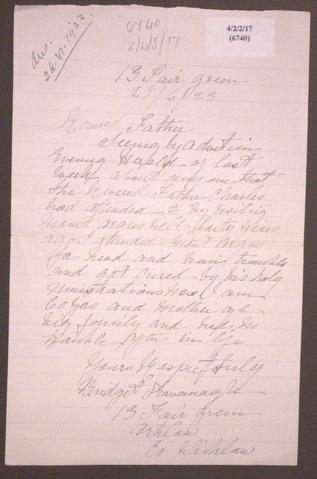 Ans.
26.VI.1923
6740
2/4/5/17
4/2/2/17
(6740)
13 Fair green
25/6/23
Revered Father
Seeing by Advert in
Evening Herald of last
week about any one that
the Revered Father Charles
had attended to by visiting
Mount Argus Well thirty years
ago I attended Mount Argus
for head and brain trouble
and got cured by his holy
ministrations Now I am
60 yrs and mother of
big family and had no
trouble after in life
Yours Respectfully
Bridget Kavanagh
13 Fair green
Arklow
Co Wicklow